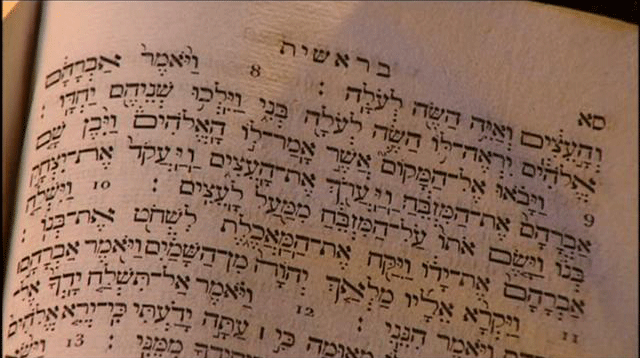 בראשית
סא
וְהָעֵצִים וְאַיֵּה הַשֶּׂה לְעֹלָה : 8 וַיֹּאמֶר אַבְרָהָם
אֱלֹהִים יִרְאֶה־לּוֹ הַשֶּׂה לְעֹלָה בְּנִי וַיֵּלְכוּ שְׁנֵיהֶם יַחְדָּו :
9 וַיָּבֹאוּ אֶל־הַמָּקוֹם אֲשֶׁר אָמַר־לוֹ הָאֱלֹהִים וַיִּבֶן שָׁם
אַבְרָהָם אֶת־הַמִּזְבֵּחַ וַיַּעֲרֹךְ אֶת־הָעֵצִים וַיַּעֲקֹד אֶת־יִצְחָק
בְּנוֹ וַיָּשֶׂם אֹתוֹ עַל־הַמִּזְבֵּחַ מִמַּעַל לָעֵצִים : 10 וַיִּשְׁלַח
אַבְרָהָם אֶת־יָדוֹ וַיִּקַּח אֶת־הַמַּאֲכֶלֶת לִשְׁחֹט אֶת־בְּנוֹ :
11 וַיִּקְרָא אֵלָיו מַלְאַךְ יְהוָה מִן־הַשָּׁמַיִם וַיֹּאמֶר אַבְרָהָם
וַיֹּאמֶר הִנֵּנִי : 12 וַיֹּאמֶר אַל־תִּשְׁלַח יָדְךָ אֶל־
מְאוּמָה כִּי ׀ עַתָּה יָדַעְתִּי כִּי־יְרֵא אֱלֹהִים
מִמֶּנִּי : 13